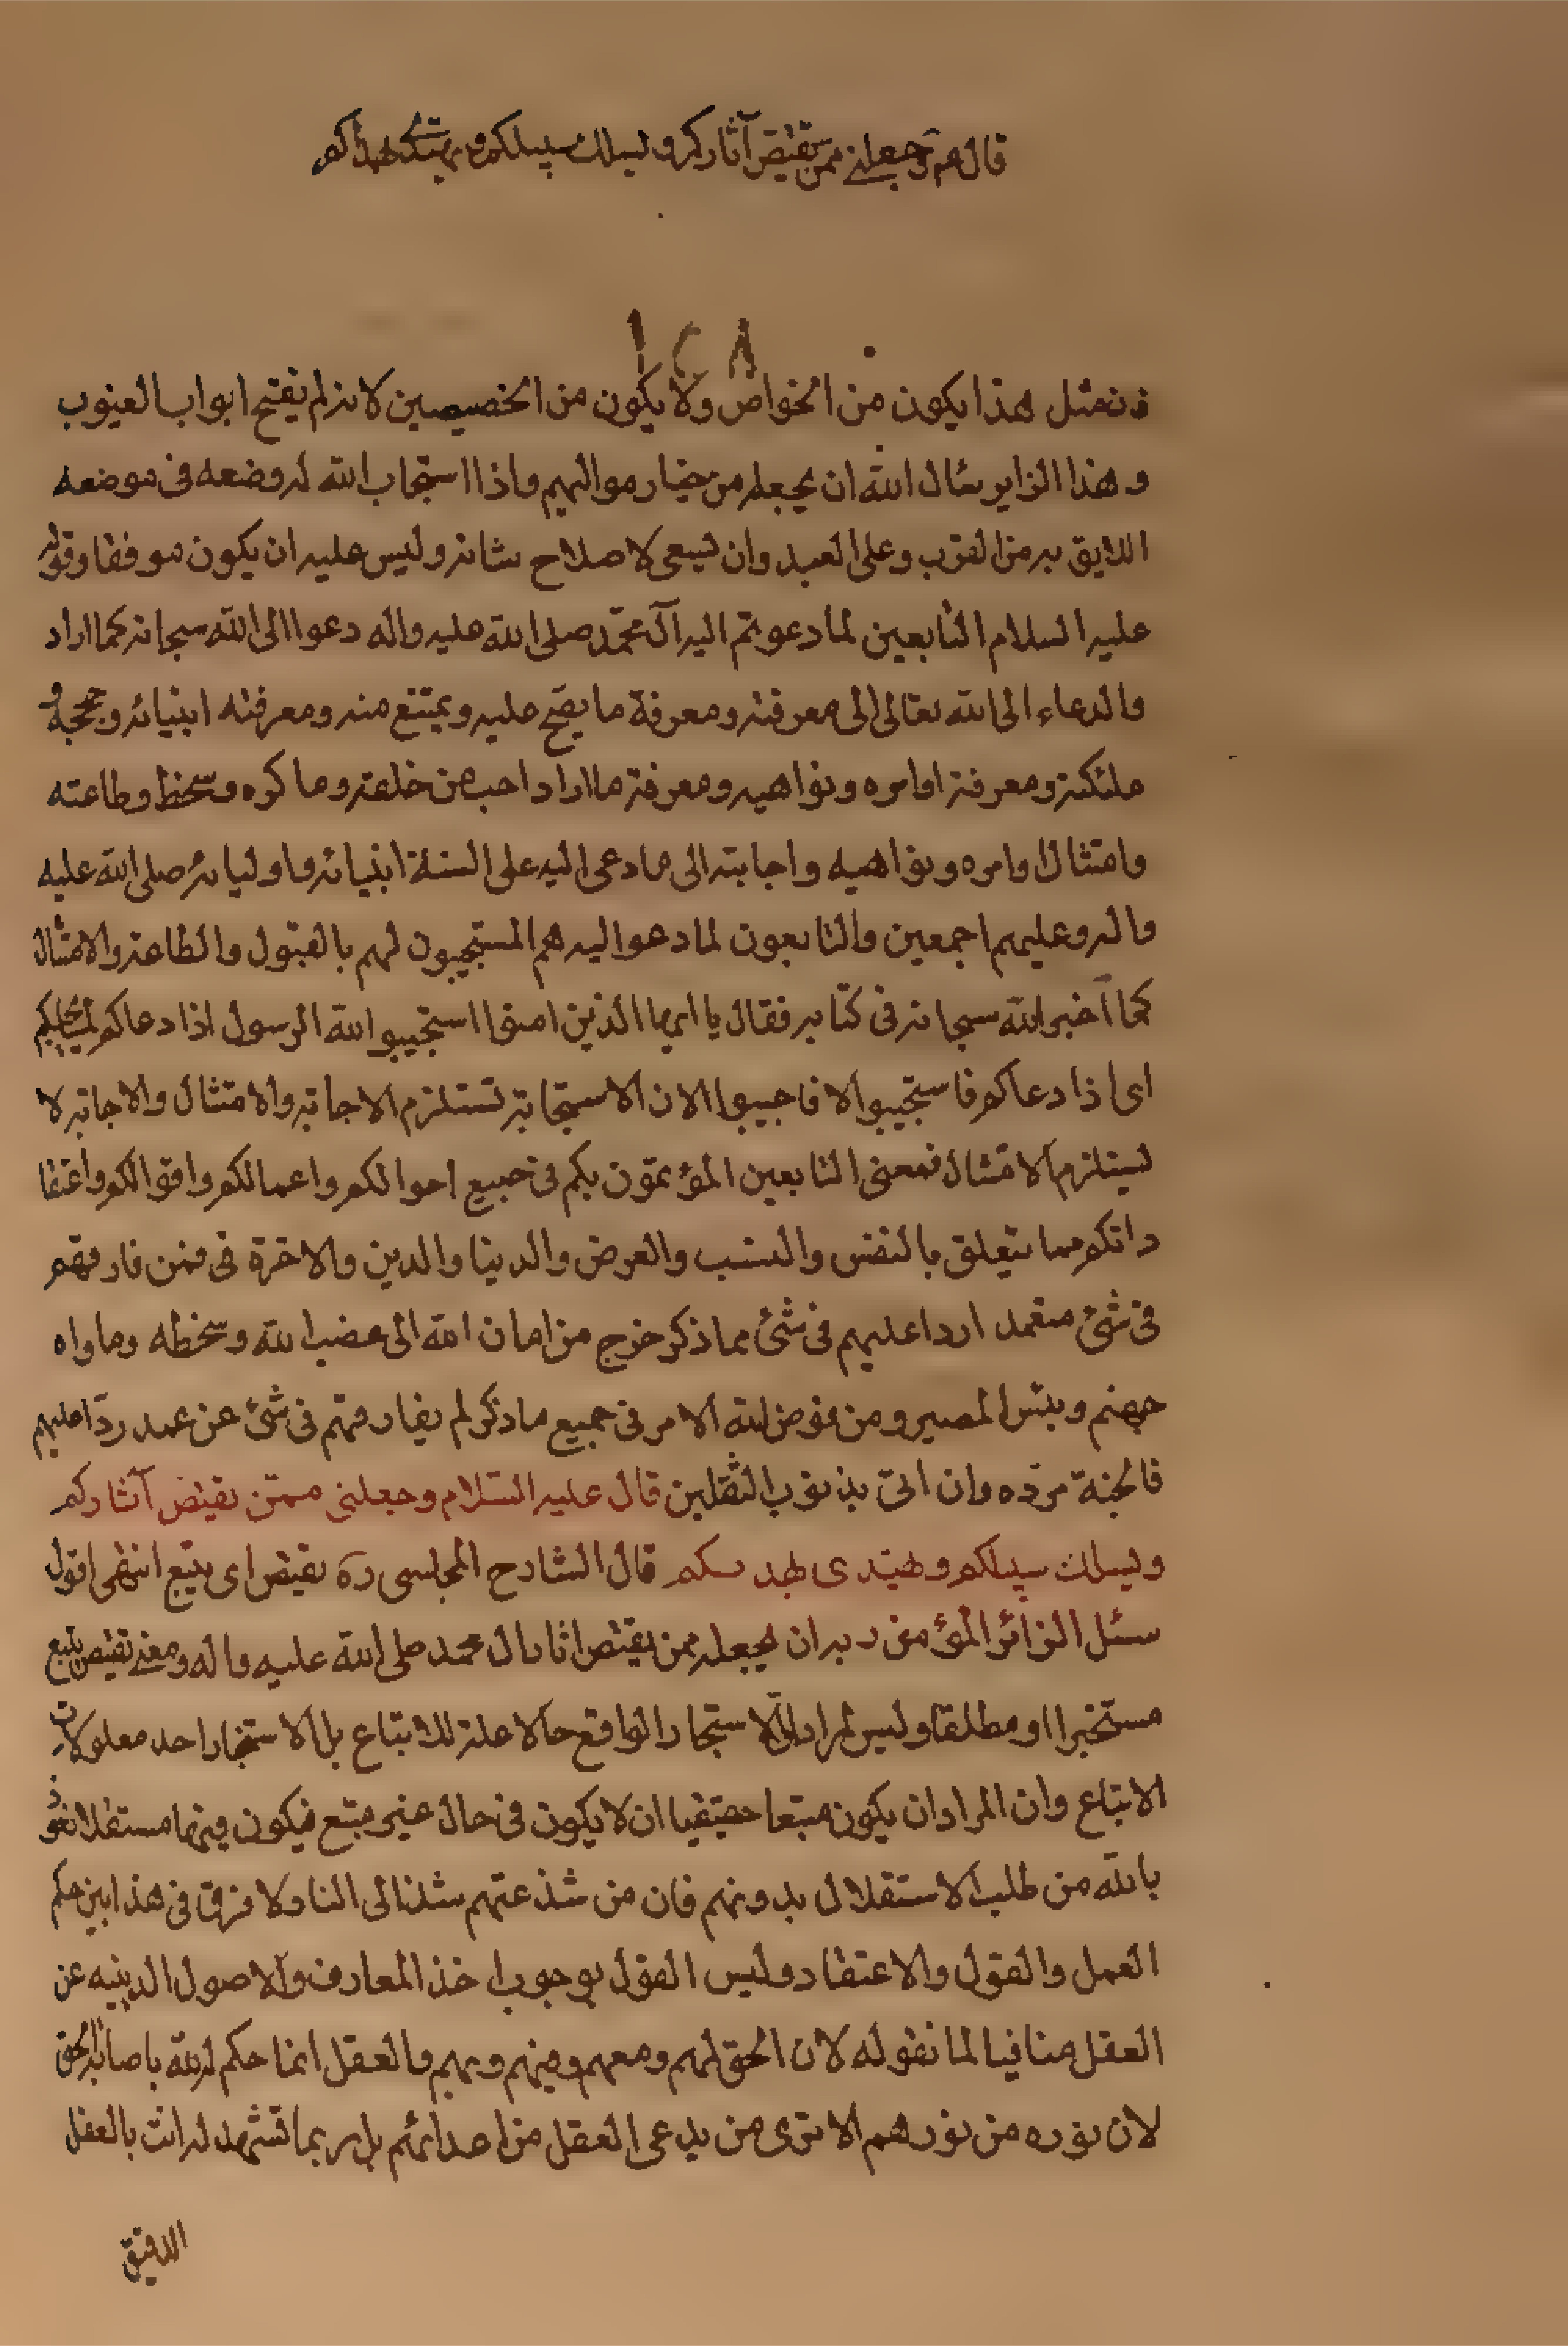 قال ع م وجعلني ممن يقتص آثاركم ويسلك سبيلكم ويهتدي بهداكم
١٢٨
فمثل هذا يكون من الخواص ولا يكون من الخصيصين لانه لم يفتح ابواب الغيوب
وهذا الزاير سئال الله ان يجعله من خيار مواليهم واذا استجاب الله له وضعه في موضعه
اللايق به من القرب وعلى العبد وان يسعى لاصلاح شانه وليس عليه ان يكون موفقا وقوله
عليه السلام التابعين لما دعوتم اليه آل محمّد صلى الله عليه واله دعوا الى الله سبحانه كما اراد
والدعاء الى الله تعالى الى معرفته ومعرفة ما يصح عليه ويمتنع منه ومعرفته انبيائه وحججه و
ملئكته ومعرفة اوامره ونواهيه ومعرفة ما اراد احب من خلقه وما كره وسخط وطاعته
وامتثال اوامره ونواهيه واجابته الى ما دعى اليه على السنة انبيائه واوليائه صلى الله عليه
واله وعليهم اجمعين والتابعون لما دعوا اليه هم المستجيبون لهم بالقبول والطاعة والامتثال
كما آخبر الله سبحانه في كتابه فقال يا ايها الذين امنوا استجيبوا الله الرسول اذا دعاكم لما يحييكم
اى اذا دعاكم فاستجيبوا لا فاجيبوا الان الاستجابة تستلزم الاجابة والامتثال والاجابة لا
يستلزم الامتثال فمعنى التابعين المؤتمّون بكم في جميع احوالكم واعمالكم واقوالكم واعتقا
داتكم مما يتعلق بالنفس والنسب والعرض والدنيا والدين والاخرة في فمن فارقهم
في شئ متعمد اردا عليهم في شئ مما ذكر خرج من امان الله الى غضب الله وسخطه وماواه
جهنم وبئس المصير ومن فوض لله الامر في جميع ما ذكر لم يفارقهم في شئ عن عمد ردّا عليهم
فالجنة مردّه وان اتى بذنوب الثقلين قال عليه السّلام وجعلني ممّن يقتص آثاركم
ويسلك سبيلكم ويهتدى بهديكم قال الشارح المجلسى ره يقتص اى يتبع انتهى اقول
سئل الزائر المؤمن ربه ان يجعله ممن يقتص اثار ال محمد صلى الله عليه واله ومعنى يقتص يتبع
مستخبرا او مطلقا وليس المراد ان الاستخبار الواقع حالا علة للاتباع بل الاستخبار احد معلولات
الاتباع وان المراد ان يكون متبعا حقيقيا ان لا يكون في حال غير متبع فيكون فيها مستقلا نعوذ
بالله من طلب الاستقلال بدونهم فان من شذ عنهم شذ الى النار ولا فرق في هذا بين حكم
العمل والقول والاعتقاد وليس القول بوجوب اخذ المعارف والاصول الدينيه عن
العقل منافيا لما نقوله لان الحق لهم ومعهم ومنهم وبهم والعقل انما حكم له الله باصابة الحق
لان نوره من نورهم الا ترى من يدعى العقل من اعدائهم بل ربما تشهد له انت بالعقل
الدقيق